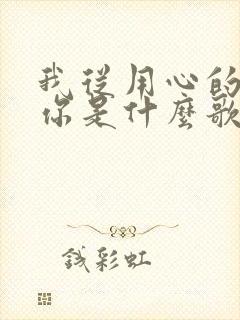 我從用心的
你是什麼歌
錢彩虹